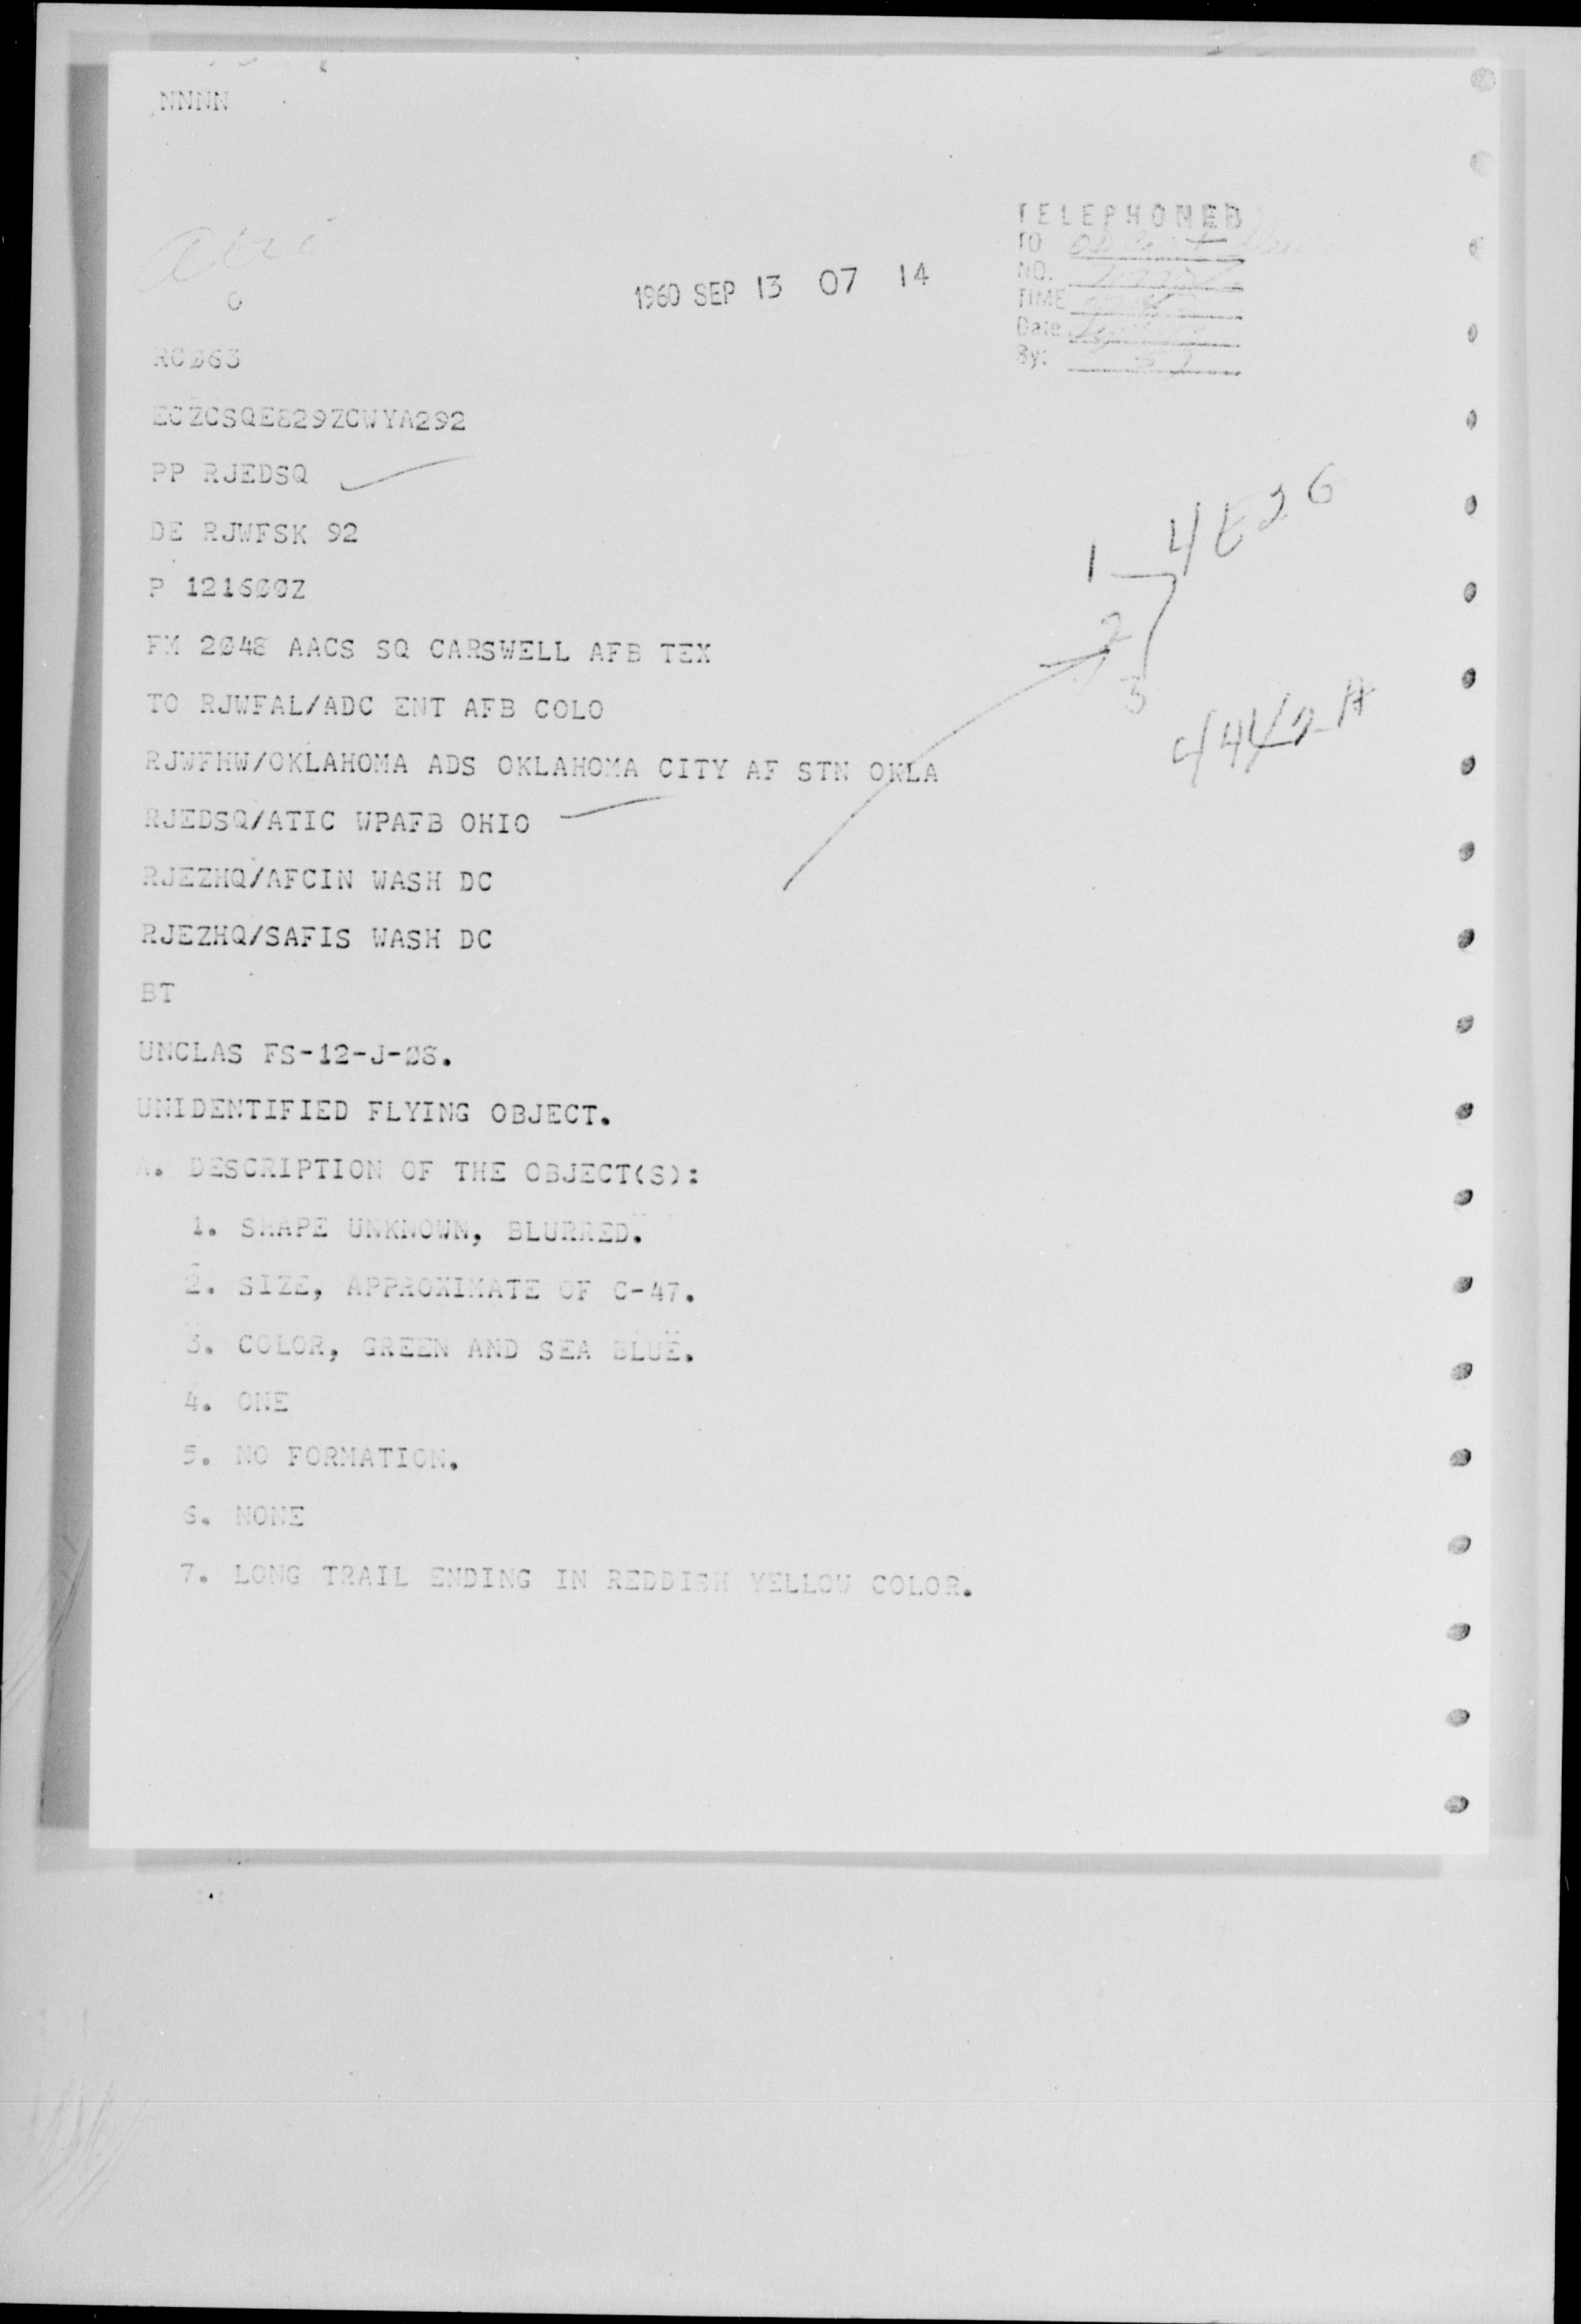 NNNN
TELEPHONED
TO
NO.
TIME
Date
By:
1960 SEP 13 07 14
RCØ63
ECZCSQE829ZCWYA292
PP RJEDSQ
DE RJWFSK 92
P 1216ØØZ
FM 2Ø48 AACS SQ CARSWELL AFB TEX
TO RJWFAL/ADC ENT AFB COLO
RJWFHW/OKLAHOMA ADS OKLAHOMA CITY AF STN OKLA
RJEDSQ/ATIC WPAFB OHIO
RJEZHQ/AFCIN WASH DC
RJEZHQ/SAFIS WASH DC
BT
UNCLAS FS-12-J-Ø8.
UNIDENTIFIED FLYING OBJECT.
A. DESCRIPTION OF THE OBJECT(S):
1. SHAPE UNKNOWN, BLURRED.
2. SIZE, APPROXIMATE OF C-47.
3. COLOR, GREEN AND SEA BLUE.
4. ONE
5. NO FORMATION.
6. NONE
7. LONG TRAIL ENDING IN REDDISH YELLOW COLOR.
1
4E26
2
3